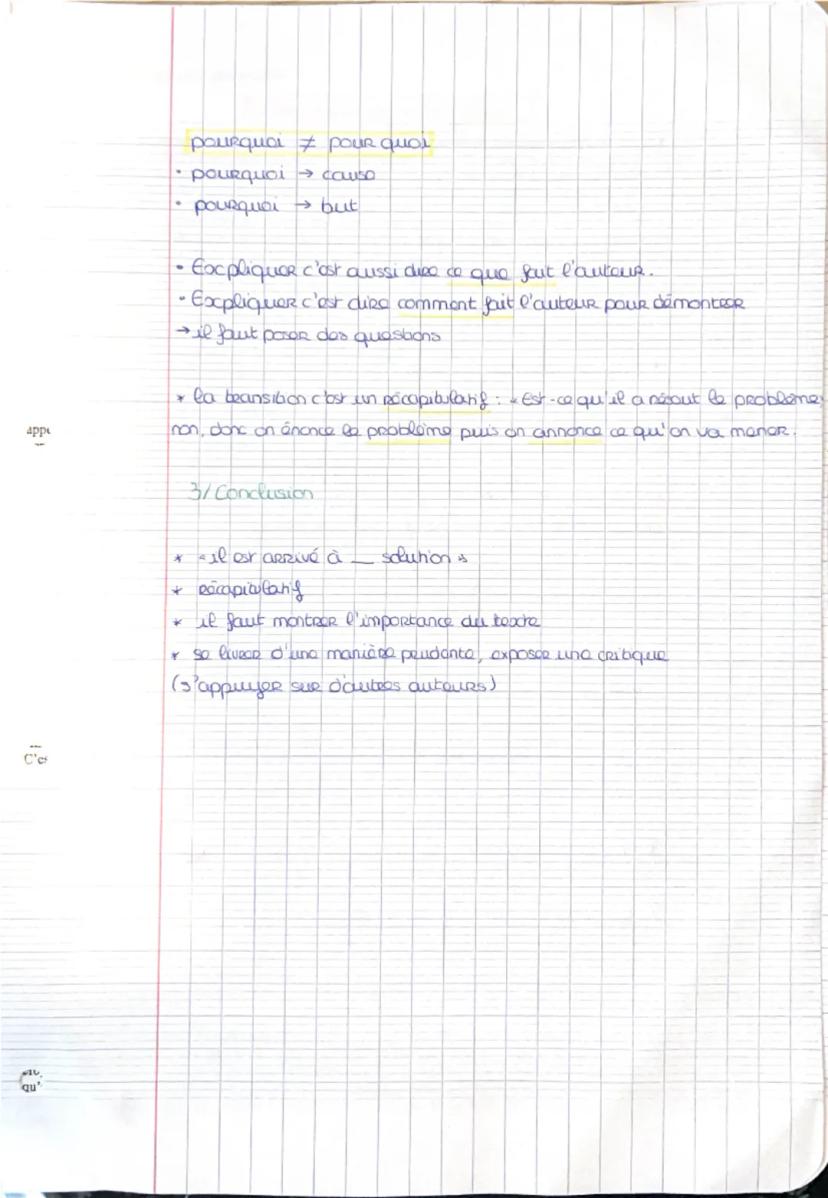 pourquoi ≠ pour quoi
• pourquoi → cause
• pourquoi → but
• Expliquer c'est aussi dire ce que fait l'auteur.
• Expliquer c'est dire comment fait l'auteur pour démontrer
→ il faut poser des questions
* la transition c'est un récapitulatif : « Est-ce qu'il a résout le problème
non, donc on énonce le problème puis on annonce ce qu'on va mener.
3/ Conclusion
* « il est arrivé à __ solution »
* récapitulatif
* il faut montrer l'importance du texte
* se livrer d'une manière prudente, exposer une critique
(s'appuyer sur d'autres auteurs)
appe
C'es
qu'